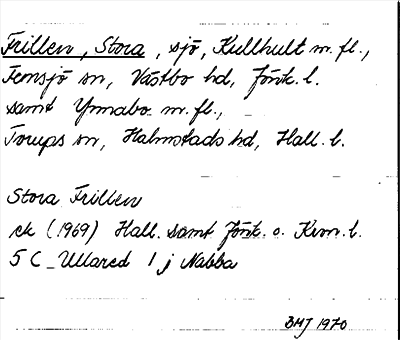 Frillen, Stora, sjö, Kullhult m. fl.,
Femsjö sn, Västbo hd, Jönk. l.
samt Ymnabo m. fl.,
Torups sn, Halmstads hd, Hall. l.
Stora Frillen
ek (1969) Hall. samt Jönk. o. Kron. l.
5 C Ullared 1 j Nabba
BHJ 1970